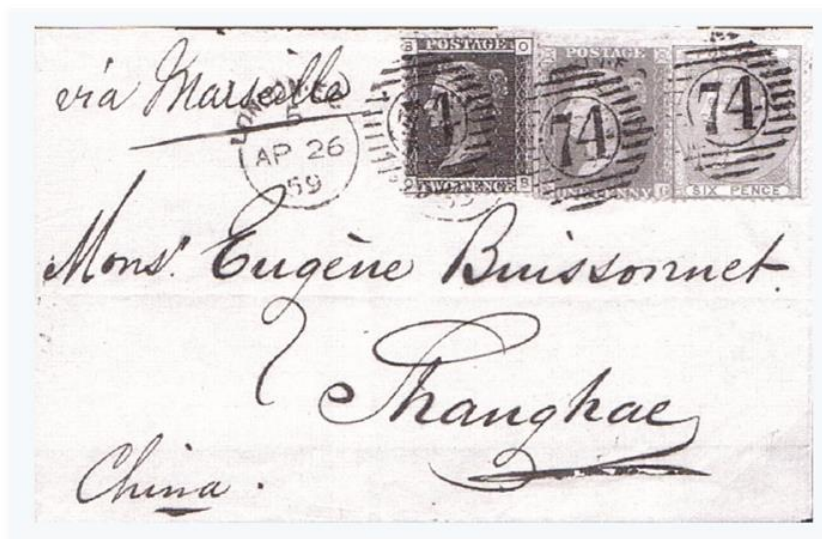 via Marseille
LONDON
AP 26
59
S POSTAGE O
O TWO PENCE S
POSTAGE
ONE PENNY
SIX PENCE
74
74
74
Monsr. Eugène Buissonnet.
Shanghae
China.